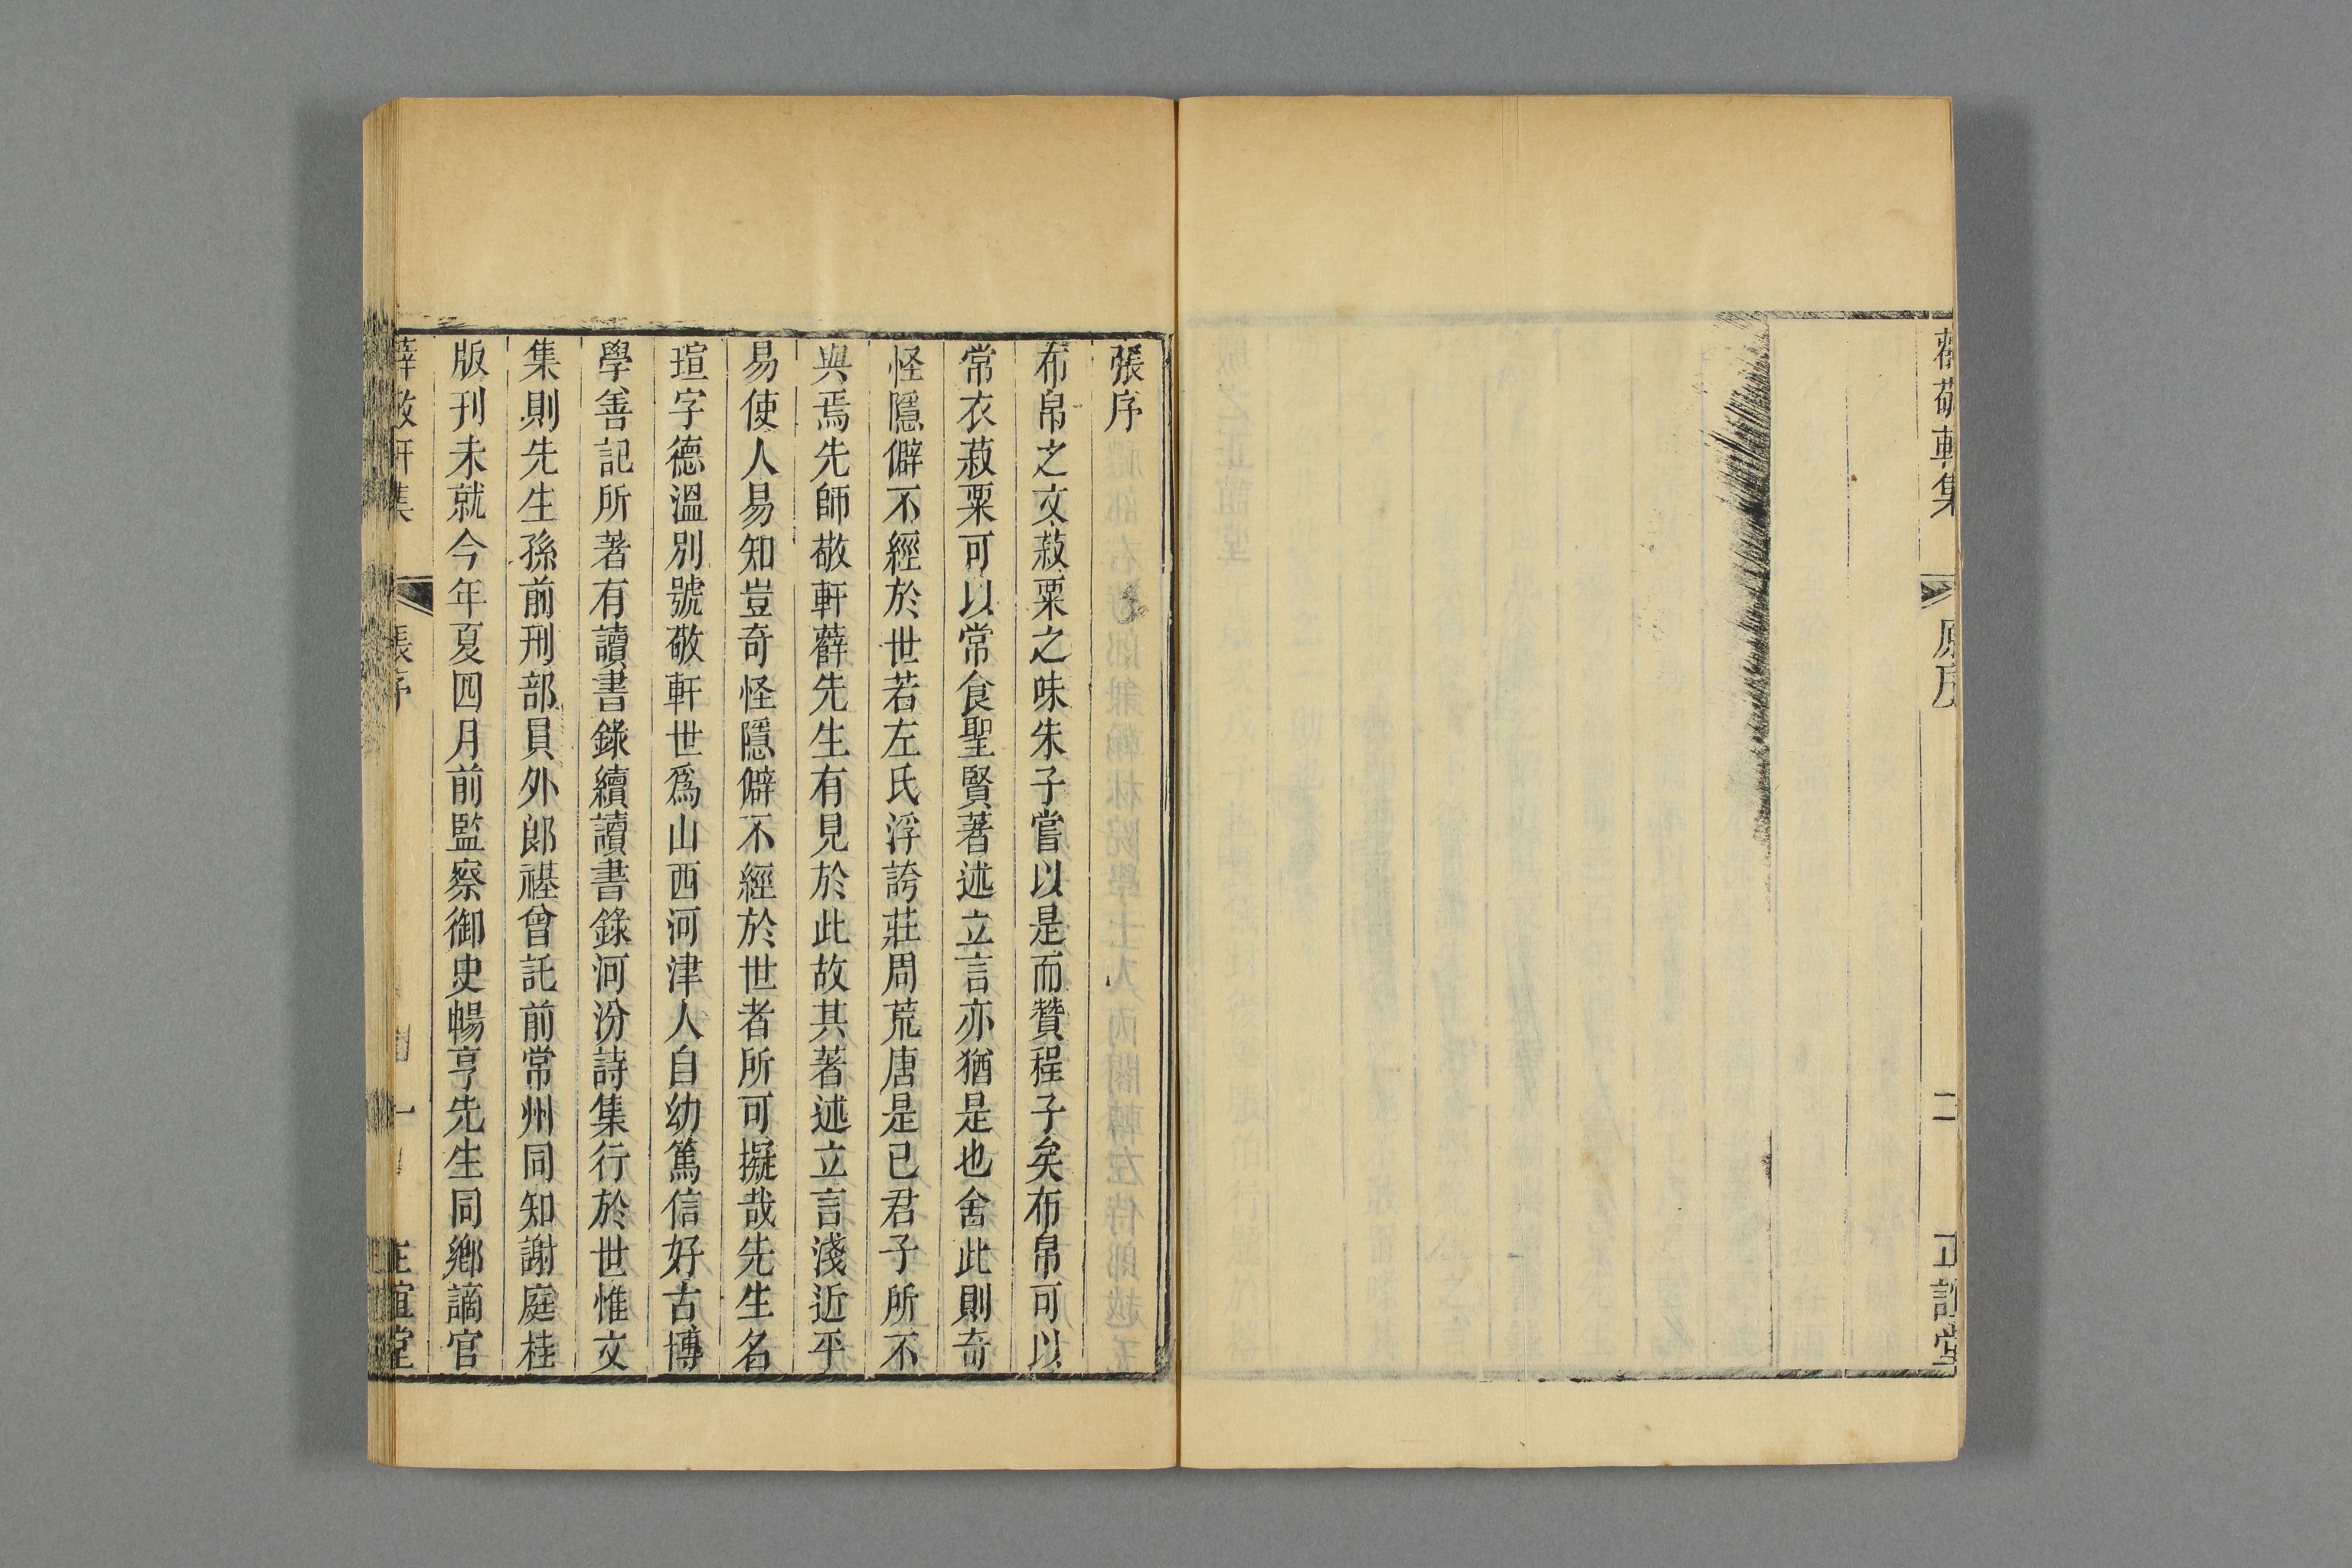 薛敬軒集 原序 二 正誼堂
張序
布帛之文菽粟之味朱子嘗以是而贊程子矣布帛可以
常衣菽粟可以常食聖賢著述立言亦猶是也舍此則奇
怪隱僻不經於世若左氏浮誇莊周荒唐是已君子所不
與焉先師敬軒薛先生有見於此故其著述立言淺近平
易使人易知豈奇怪隱僻不經於世者所可擬哉先生名
瑄字德溫別號敬軒世爲山西河津人自幼篤信好古博
學善記所著有讀書錄續讀書錄河汾詩集行於世惟文
集則先生孫前刑部員外郎禥曾託前常州同知謝庭桂
版刊未就今年夏四月前監察御史暢亨先生同鄉謫官
薛敬軒集 張序 一 正誼堂